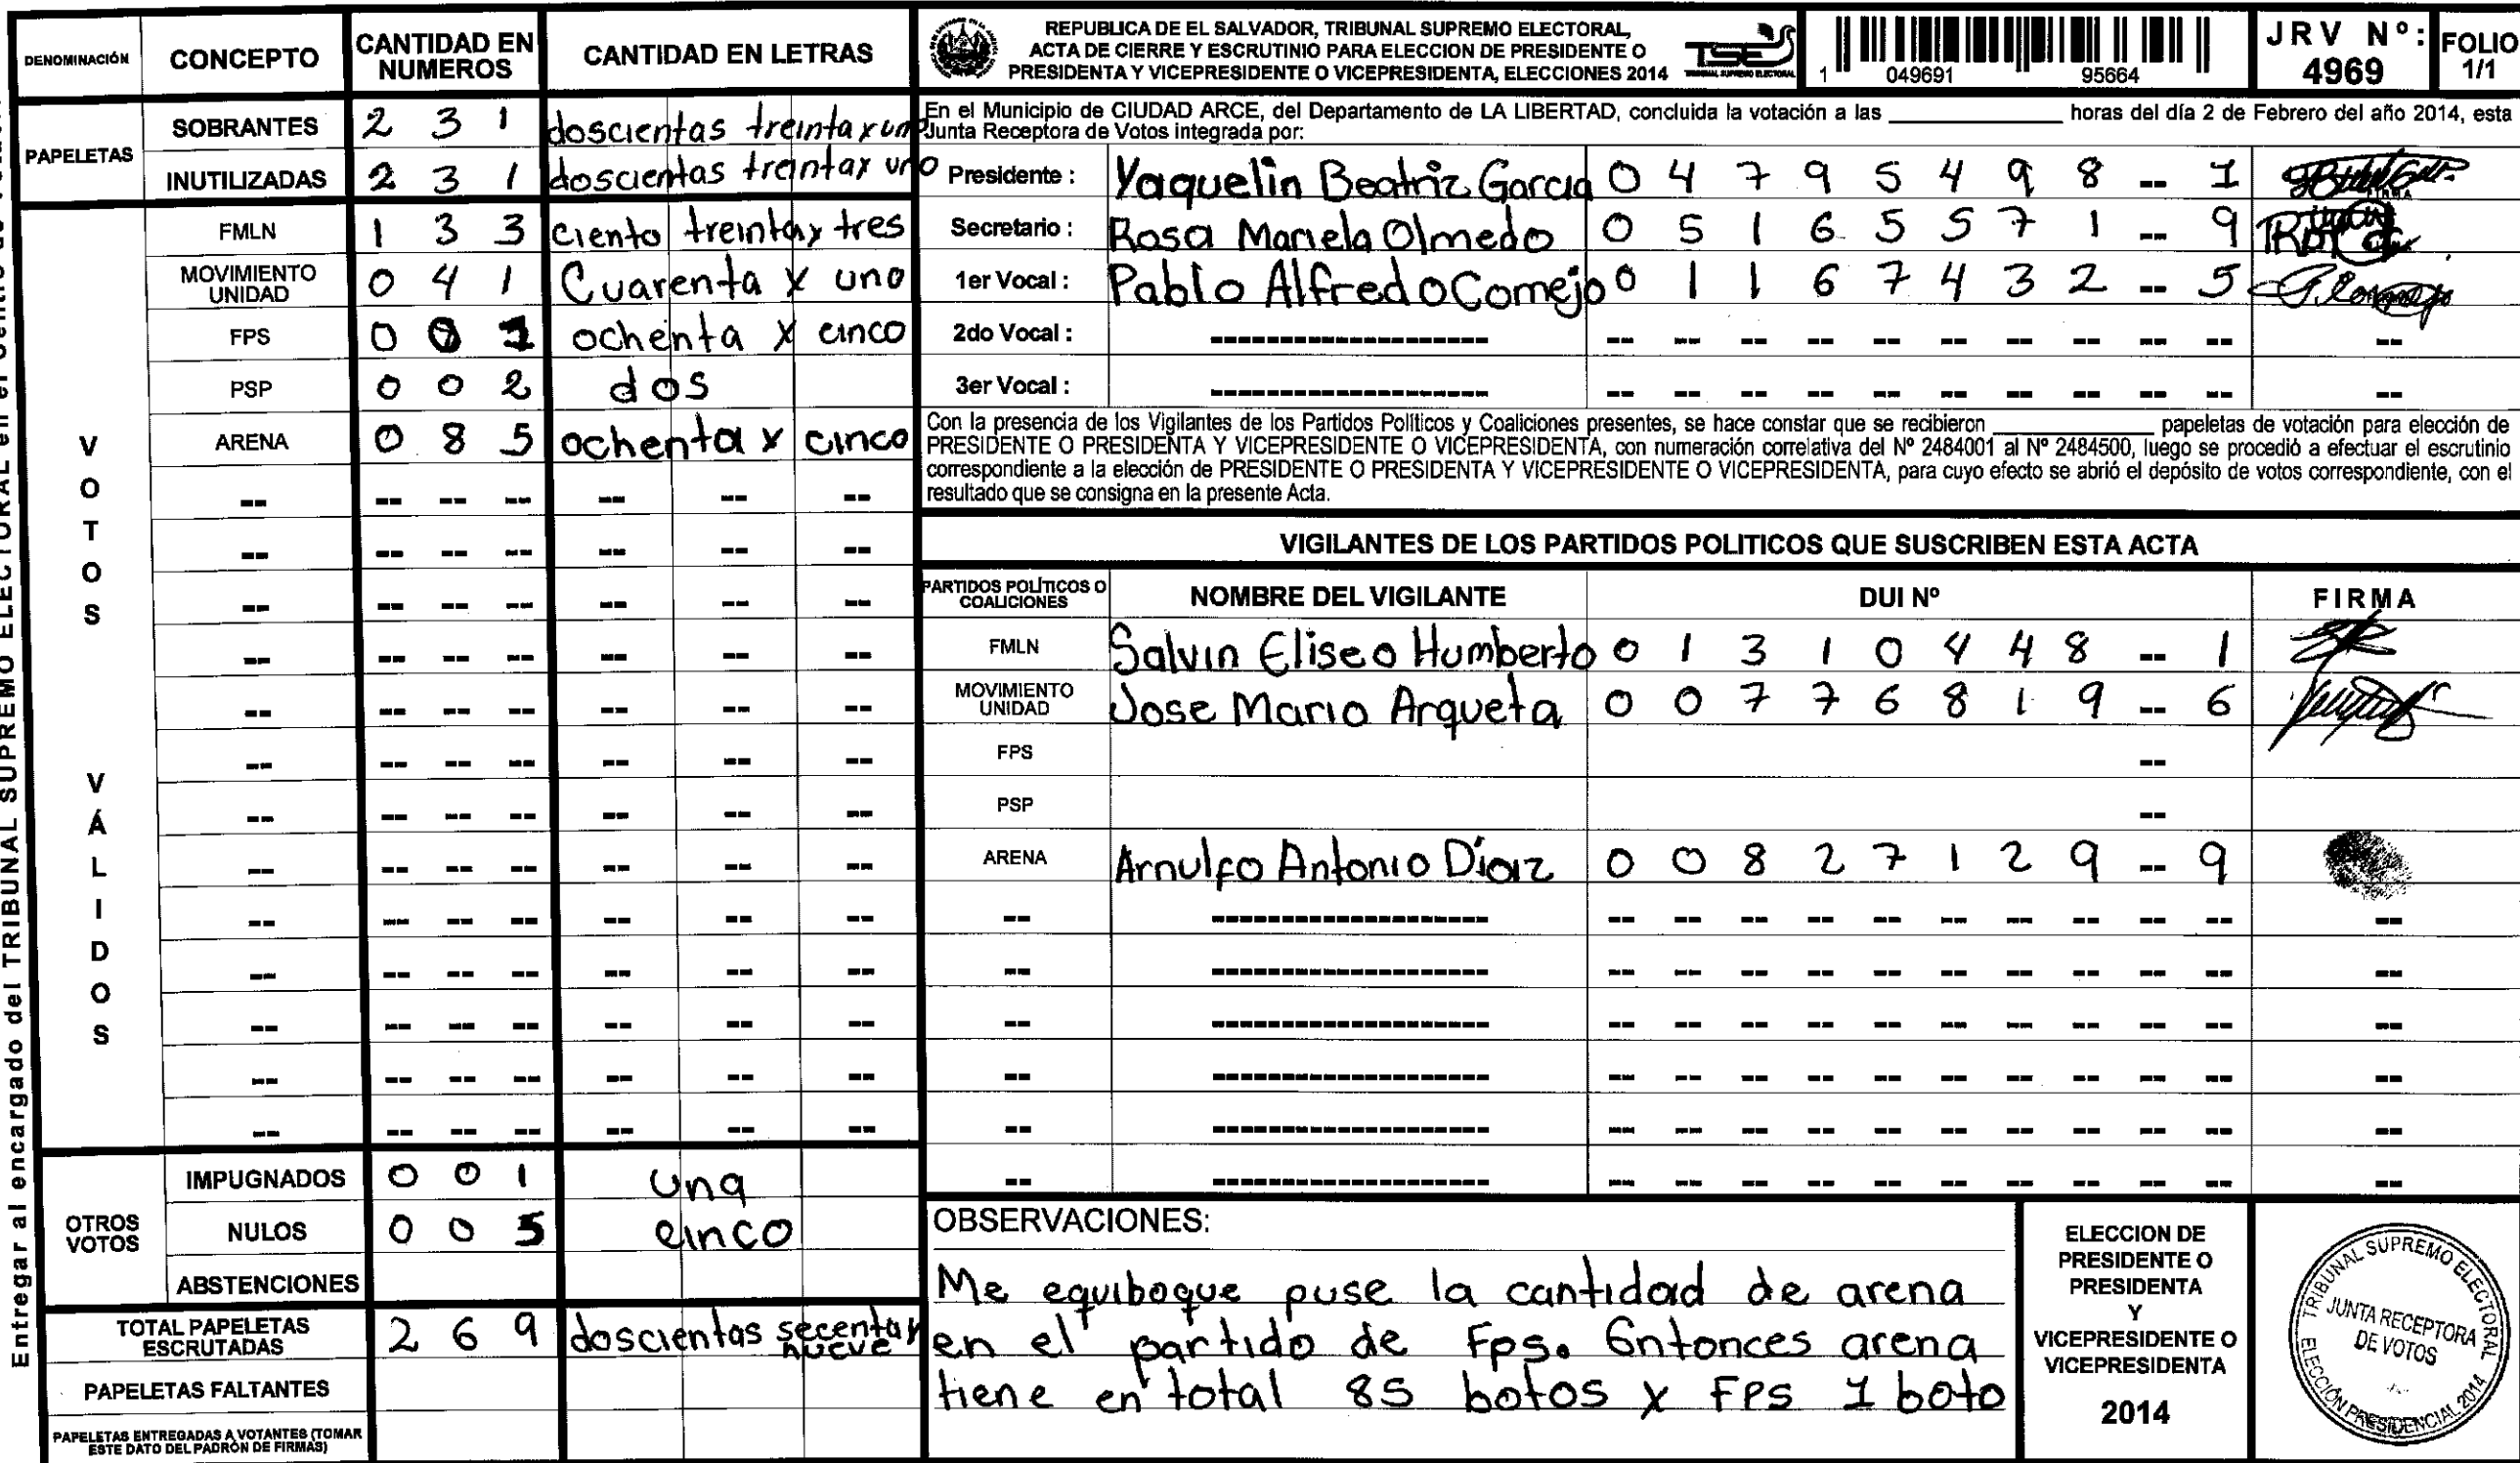 Entregar al encargado del TRIBUNAL SUPREMO ELECTORAL en el
DENOMINACIÓN CONCEPTO CANTIDAD EN NUMEROS CANTIDAD EN LETRAS
PAPELETAS
SOBRANTES 2 3 1 doscientas treinta x uno
INUTILIZADAS 2 3 1 doscientas treinta x uno
VOTOS VÁLIDOS
FMLN 1 3 3 ciento treinta x tres
MOVIMIENTO UNIDAD 0 4 1 Cuarenta x uno
FPS 0 0 1 ochenta x cinco
PSP 0 0 2 dos
ARENA 0 8 5 ochenta x cinco
OTROS VOTOS
IMPUGNADOS 0 0 1 una
NULOS 0 0 5 cinco
ABSTENCIONES
TOTAL PAPELETAS ESCRUTADAS 2 6 9 doscientas secenta y nueve
PAPELETAS FALTANTES
PAPELETAS ENTREGADAS A VOTANTES (TOMAR
ESTE DATO DEL PADRÓN DE FIRMAS)
REPUBLICA DE EL SALVADOR, TRIBUNAL SUPREMO ELECTORAL,
ACTA DE CIERRE Y ESCRUTINIO PARA ELECCION DE PRESIDENTE O
PRESIDENTA Y VICEPRESIDENTE O VICEPRESIDENTA, ELECCIONES 2014
TSE
TRIBUNAL SUPREMO ELECTORAL
1 049691 95664
JRV Nº: 4969
FOLIO 1/1
En el Municipio de CIUDAD ARCE, del Departamento de LA LIBERTAD, concluida la votación a las ____________ horas del día 2 de Febrero del año 2014, esta
Junta Receptora de Votos integrada por:
Presidente : Yaquelin Beatriz Garcia 0 4 7 9 5 4 9 8 -- 1
FIRMA
Secretario : Rosa Mariela Olmedo 0 5 1 6 5 5 7 1 -- 9
1er Vocal : Pablo Alfredo Cornejo 0 1 1 6 7 4 3 2 -- 5
2do Vocal :
3er Vocal :
Con la presencia de los Vigilantes de los Partidos Políticos y Coaliciones presentes, se hace constar que se recibieron ____________ papeletas de votación para elección de
PRESIDENTE O PRESIDENTA Y VICEPRESIDENTE O VICEPRESIDENTA, con numeración correlativa del Nº 2484001 al Nº 2484500, luego se procedió a efectuar el escrutinio
correspondiente a la elección de PRESIDENTE O PRESIDENTA Y VICEPRESIDENTE O VICEPRESIDENTA, para cuyo efecto se abrió el depósito de votos correspondiente, con el
resultado que se consigna en la presente Acta.
VIGILANTES DE LOS PARTIDOS POLITICOS QUE SUSCRIBEN ESTA ACTA
PARTIDOS POLÍTICOS O COALICIONES NOMBRE DEL VIGILANTE DUI Nº FIRMA
FMLN Salvin Eliseo Humberto 0 1 3 1 0 4 4 8 -- 1
MOVIMIENTO UNIDAD Jose Mario Arqueta 0 0 7 7 6 8 1 9 -- 6
FPS --
PSP --
ARENA Arnulfo Antonio Díaz 0 0 8 2 7 1 2 9 -- 9
OBSERVACIONES:
Me equiboque puse la cantidad de arena
en el partido de Fps. Entonces arena
tiene en total 85 botos x FPS 1 boto
ELECCION DE
PRESIDENTE O
PRESIDENTA
Y
VICEPRESIDENTE O
VICEPRESIDENTA
2014
TRIBUNAL SUPREMO ELECTORAL
JUNTA RECEPTORA
DE VOTOS
ELECCIÓN PRESIDENCIAL 2014